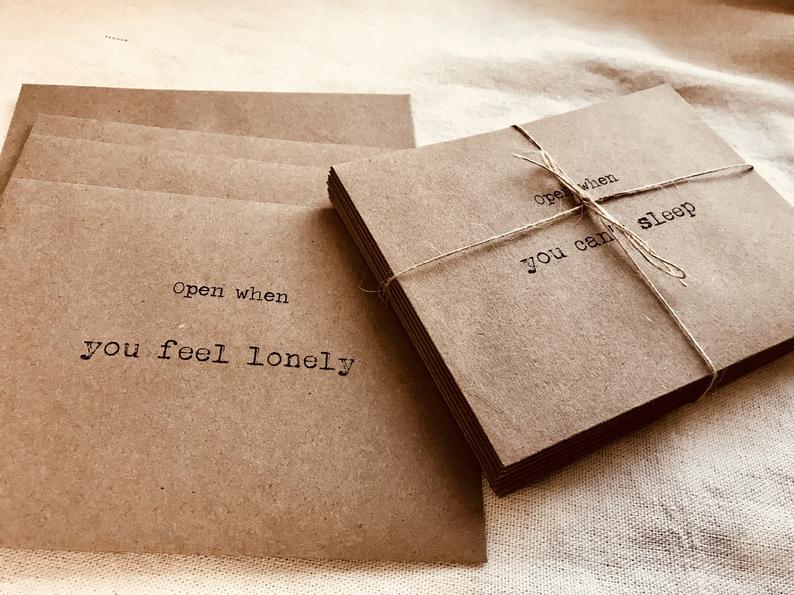 Open when
you feel lonely
Open when
you can't sleep